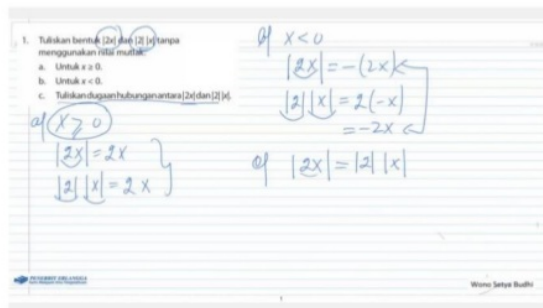 1. Tuliskan bentuk |2x| dan |2| |x| tanpa
menggunakan nilai mutlak.
a. Untuk x ≥ 0.
b. Untuk x < 0.
c. Tuliskan dugaan hubungan antara |2x| dan |2| |x|.
a) x ≥ 0
|2x| = 2x
|2| |x| = 2x
b) x < 0
|2x| = -(2x)
|2| |x| = 2(-x)
= -2x
c) |2x| = |2| |x|
PENERBIT ERLANGGA
Wono Setya Budhi
1